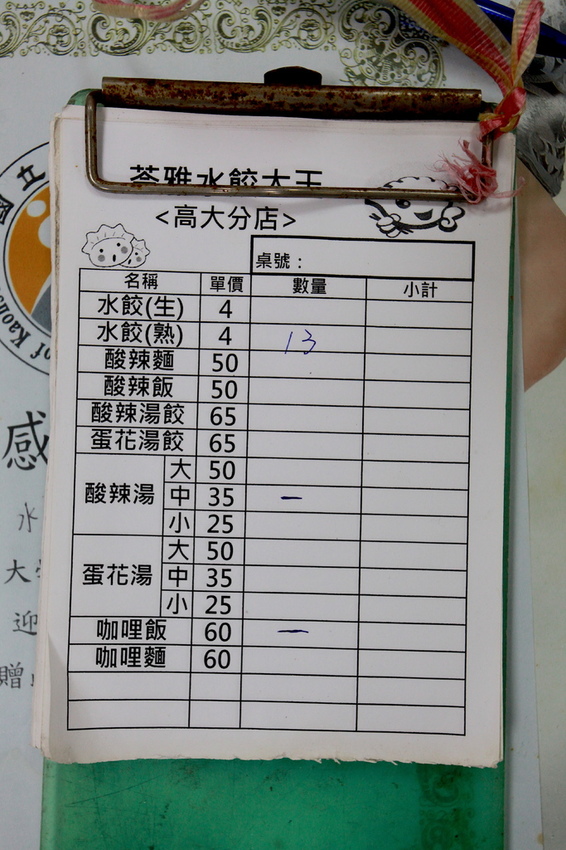 苓雅水餃大王
<高大分店>
桌號：
名稱 單價 數量 小計
水餃(生) 4
水餃(熟) 4 13
酸辣麵 50
酸辣飯 50
酸辣湯餃 65
蛋花湯餃 65
酸辣湯 大 50
中 35 一
小 25
蛋花湯 大 50
中 35
小 25
咖哩飯 60 一
咖哩麵 60
國立
of Kaohs
感
水
大
迎
贈